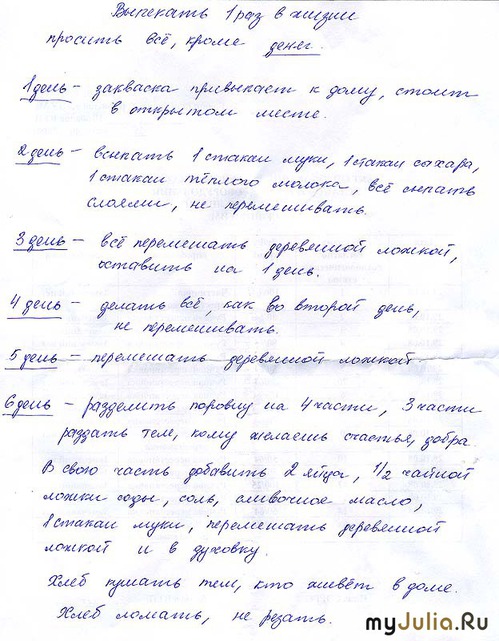 Выпекать 1 раз в жизни
просить всё, кроме денег.
1 день – закваска привыкает к дому, стоит
в открытом месте.
2 день – всыпать 1 стакан муки, 1 стакан сахара,
1 стакан тёплого молока, всё сыпать
слоями, не перемешивать.
3 день – всё перемешать деревянной ложкой,
оставить на 1 день.
4 день – делать всё, как во второй день,
не перемешивать.
5 день – перемешать деревянной ложкой
6 день – разделить поровну на 4 части, 3 части
раздать тем, кому желаешь счастья, добра.
В свою часть добавить 2 яйца, 1/2 чайной
ложки соды, соль, сливочное масло,
1 стакан муки, перемешать деревянной
ложкой и в духовку.
Хлеб кушать тем, кто живёт в доме.
Хлеб ломать, не резать.
myJulia.Ru